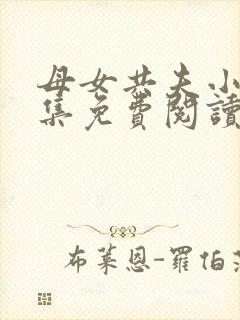 母女共夫小
集免費閱讀
布萊恩-羅伯